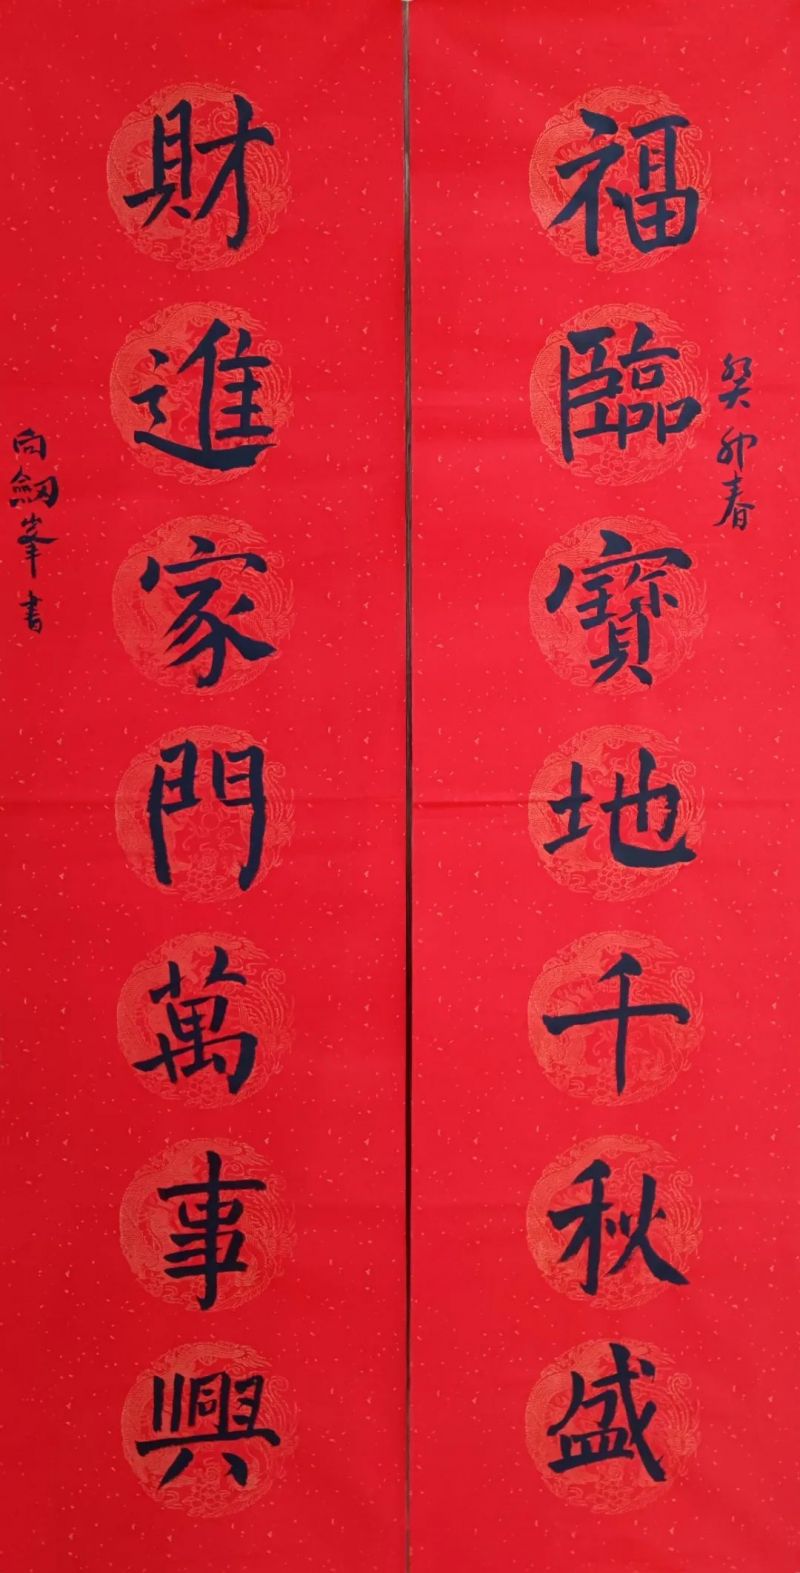 福臨寶地千秋盛
癸卯春
財進家門萬事興
向劔峯書